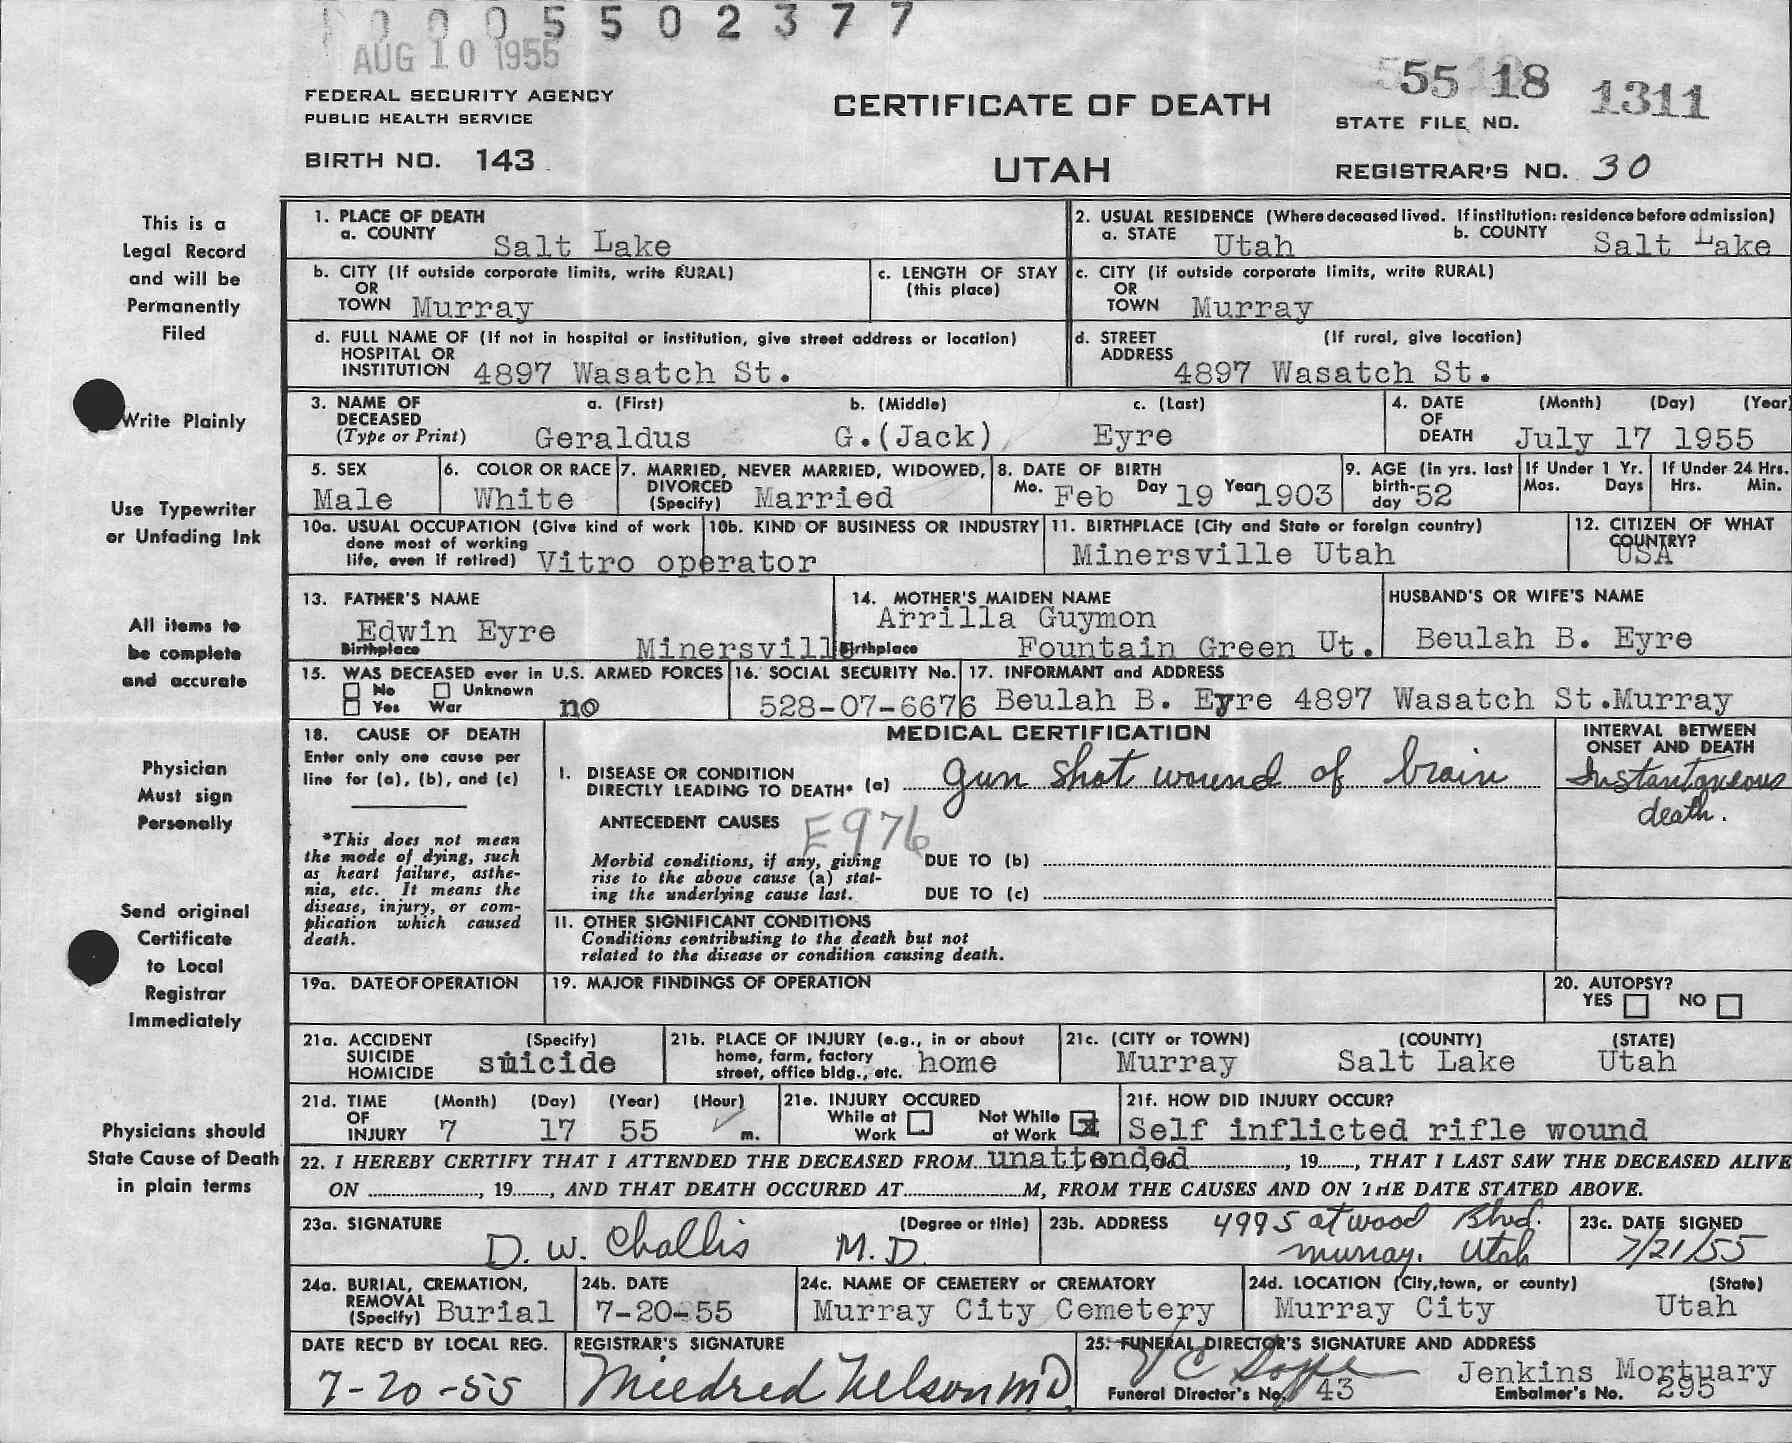 0005502377
AUG 10 1955
55 18 1311
FEDERAL SECURITY AGENCY
PUBLIC HEALTH SERVICE
CERTIFICATE OF DEATH
STATE FILE NO.
BIRTH NO. 143
UTAH
REGISTRAR'S NO. 30
This is a
Legal Record
and will be
Permanently
Filed
Write Plainly
Use Typewriter
or Unfading Ink
All items to
be complete
and accurate
Physician
Must sign
Personally
Send original
Certificate
to Local
Registrar
Immediately
Physicians should
State Cause of Death
in plain terms
1. PLACE OF DEATH
a. COUNTY Salt Lake
2. USUAL RESIDENCE (Where deceased lived. If institution: residence before admission)
a. STATE Utah b. COUNTY Salt Lake
b. CITY (If outside corporate limits, write RURAL)
OR
TOWN Murray
c. LENGTH OF STAY
(this place)
c. CITY (if outside corporate limits, write RURAL)
OR
TOWN Murray
d. FULL NAME OF (If not in hospital or institution, give street address or location)
HOSPITAL OR
INSTITUTION 4897 Wasatch St.
d. STREET (If rural, give location)
ADDRESS
4897 Wasatch St.
3. NAME OF DECEASED (Type or Print)
a. (First) b. (Middle) c. (Last)
Geraldus G.(Jack) Eyre
4. DATE OF DEATH (Month) (Day) (Year)
July 17 1955
5. SEX
Male
6. COLOR OR RACE
White
7. MARRIED, NEVER MARRIED, WIDOWED,
DIVORCED
(Specify) Married
8. DATE OF BIRTH
Mo. Feb Day 19 Year 1903
9. AGE (in yrs. last
birth-
day 52
If Under 1 Yr.
Mos. Days
If Under 24 Hrs.
Hrs. Min.
10a. USUAL OCCUPATION (Give kind of work
done most of working
life, even if retired) Vitro operator
10b. KIND OF BUSINESS OR INDUSTRY
11. BIRTHPLACE (City and State or foreign country)
Minersville Utah
12. CITIZEN OF WHAT
COUNTRY?
USA
13. FATHER'S NAME
Edwin Eyre
Birthplace Minersvill
14. MOTHER'S MAIDEN NAME
Arrilla Guymon
Birthplace Fountain Green Ut.
HUSBAND'S OR WIFE'S NAME
Beulah B. Eyre
15. WAS DECEASED ever in U.S. ARMED FORCES
No Unknown
Yes War no
16. SOCIAL SECURITY No.
528-07-6676
17. INFORMANT and ADDRESS
Beulah B. Eyre 4897 Wasatch St.Murray
18. CAUSE OF DEATH
Enter only one cause per
line for (a), (b), and (c)
*This does not mean
the mode of dying, such
as heart failure, asthe-
nia, etc. It means the
disease, injury, or com-
plication which caused
death.
MEDICAL CERTIFICATION
INTERVAL BETWEEN
ONSET AND DEATH
I. DISEASE OR CONDITION
DIRECTLY LEADING TO DEATH* (a) gun shot wound of brain
Instantaneous
death.
ANTECEDENT CAUSES E976
Morbid conditions, if any, giving
rise to the above cause (a) stat-
ing the underlying cause last.
DUE TO (b)
DUE TO (c)
II. OTHER SIGNIFICANT CONDITIONS
Conditions contributing to the death but not
related to the disease or condition causing death.
19a. DATE OF OPERATION
19. MAJOR FINDINGS OF OPERATION
20. AUTOPSY?
YES NO
21a. ACCIDENT (Specify)
SUICIDE
HOMICIDE suicide
21b. PLACE OF INJURY (e.g., in or about
home, farm, factory
street, office bldg., etc. home
21c. (CITY or TOWN) (COUNTY) (STATE)
Murray Salt Lake Utah
21d. TIME (Month) (Day) (Year) (Hour)
OF
INJURY 7 17 55 m.
21e. INJURY OCCURED
While at
Work
Not While
at Work x
21f. HOW DID INJURY OCCUR?
Self inflicted rifle wound
22. I HEREBY CERTIFY THAT I ATTENDED THE DECEASED FROM unattended, 19, THAT I LAST SAW THE DECEASED ALIVE
ON , 19, AND THAT DEATH OCCURED AT M, FROM THE CAUSES AND ON THE DATE STATED ABOVE.
23a. SIGNATURE (Degree or title)
D. W. Challis M.D.
23b. ADDRESS 4995 atwood Blvd.
murray, Utah
23c. DATE SIGNED
7/21/55
24a. BURIAL, CREMATION,
REMOVAL
(Specify) Burial
24b. DATE
7-20-55
24c. NAME OF CEMETERY or CREMATORY
Murray City Cemetery
24d. LOCATION (City, town, or county) (State)
Murray City Utah
DATE REC'D BY LOCAL REG.
7-20-55
REGISTRAR'S SIGNATURE
Mildred Nelson MD
25. FUNERAL DIRECTOR'S SIGNATURE AND ADDRESS
Jenkins Mortuary
Funeral Director's No. 43
Embalmer's No. 295